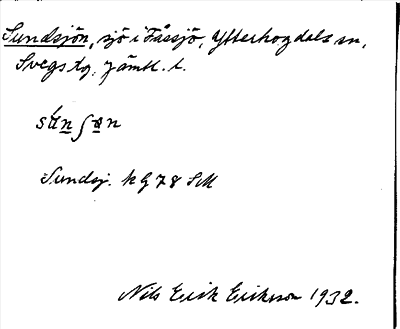 Sundsjön, sjö i Fåssjö, Ytterhogdals sn,
Svegs tg. Jämtl. l.
Sundsj. kG 78 SM
Nils Erik Eriksson 1932.